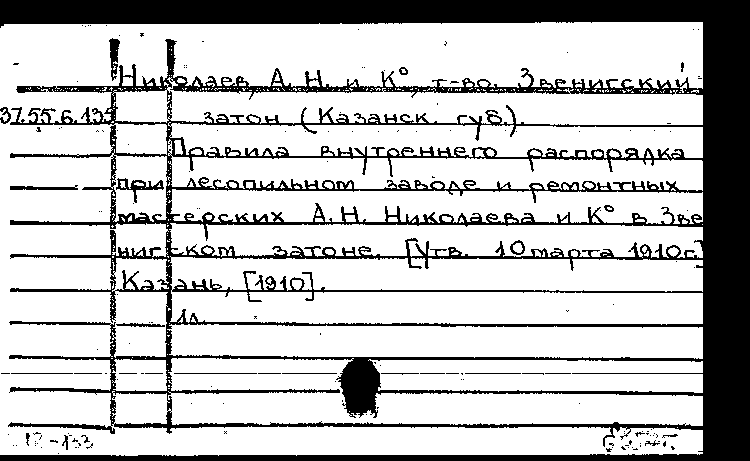 Николаев, А. Н. и К°, т-во. Звенигский
37.55.6.135 затон (Казанск. губ.).
Правила внутреннего распорядка
при лесопильном заводе и ремонтных
мастерских А. Н. Николаева и К° в Зве
нигском затоне. [Утв. 10 марта 1910 г.]
Казань, [1910].
1 л.
12-133